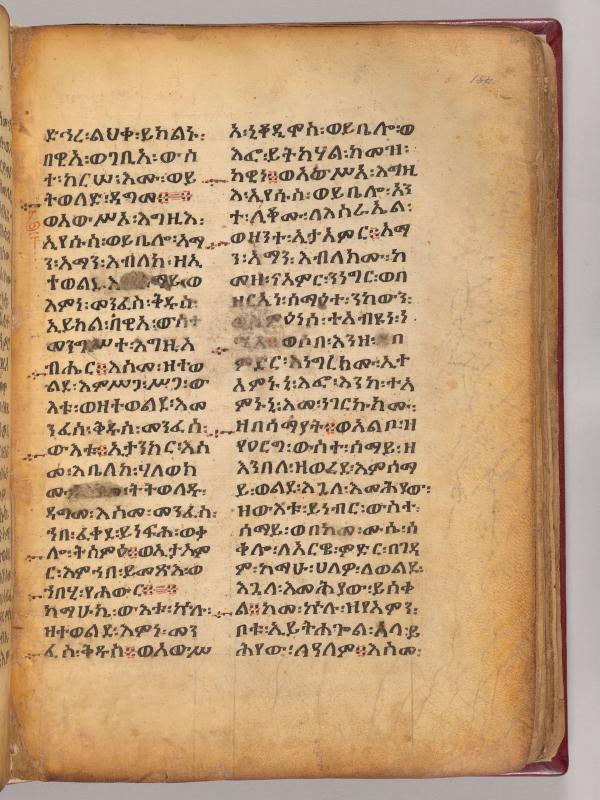 ድኅረ፡ልህቀ፡ይክልኑ፡
በዊአ፡ወገቢአ፡ውስ
ተ፡ከርሠ፡እሙ፡ወይ
ትወለድ፡ዳግመ፨
ወአውሥአ፡እግዚእ፡
ኢየሱስ፡ወይቤሎ፡አማ
ን፡አማን፡እብለከ፡ዘኢ
ተወልደ፡ ማይ፡ወ
እምነ፡መንፈስ፡ቅዱስ፡
ኢይክል፡በዊአ፡ውስተ
መንግሥተ፡እግዚአ
ብሔር፨እስመ፡ዘተወ
ልደ፡እምሥጋ፡ሥጋ፡ው
እቱ፡ወዘተወልደ፡እመ
ንፈስ፡ቅዱስ፡መንፈስ፡
ውእቱ፨ኢታንክር፡እስ
መ፡እቤለከ፡ሀለወክ
መ፡ ትትወለዱ፡
ዳግመ፡እስመ፡መንፈስ፡
ኀበ፡ፈቀደ፡ይነፍሕ፡ወቃ
ሎ፡ትሰምዕ፨ወኢታአም
ር፡እምኀበ፡ይመጽእ፡ወ
ኀበሂ፡የሐውር፨
ከማሁኬ፡ውእቱ፡ኵሉ፡
ዘተወልደ፡እምነ፡መን
ፈስ፡ቅዱስ፨ወአውሥ
አ፡ኒቆዲሞስ፡ወይቤሎ፡ወ
እፎ፡ይትከሃል፡ከመዝ፡
ከዊነ፨ወአውሥአ፡እግዚ
እ፡ኢየሱስ፡ወይቤሎ፡አን
ተ፡ሊቆሙ፡ለእስራኤል፡
ወዘንተ፡ኢታአምር፨አማ
ን፡አማን፡እብለክሙ፡ከ
መዘ፡ናአምር፡ንነግር፡ወበ
ዘርኢነ፡ሰማዕተ፡ንከውን፡
ወሶበ፡እንዘ፡
ምድር፡እነግረክሙ፡ኢተ
አምኑኒ፡እፎ፡እንከ፡ተአ
ምኑኒ፡እመ፡ነገርኩክሙ፡
ዘበሰማያት፨ወአልቦ፡ዘ
የዐርግ፡ውስተ፡ሰማይ፡ዘ
እንበለ፡ዘወረደ፡እምሰማ
ይ፡ወልደ፡እጓለ፡እመሕያው፡
ዘውእቱ፡ይነብር፡ውስተ፡
ሰማይ፡ወበከመ፡ሙሴ፡ሰ
ቀሎ፡ለአርዌ፡ምድር፡በገዳ
ም፡ከማሁ፡ሀለዎ፡ለወልደ፡
እጓለ፡እመሕያው፡ይሰቀ
ል፨ከመ፡ኵሉ፡ዘየአምን፡
ቦቱ፡ኢይትሐጐል፡አላ፡ይ
ሕየው፡ለዓለም፨እስመ፡